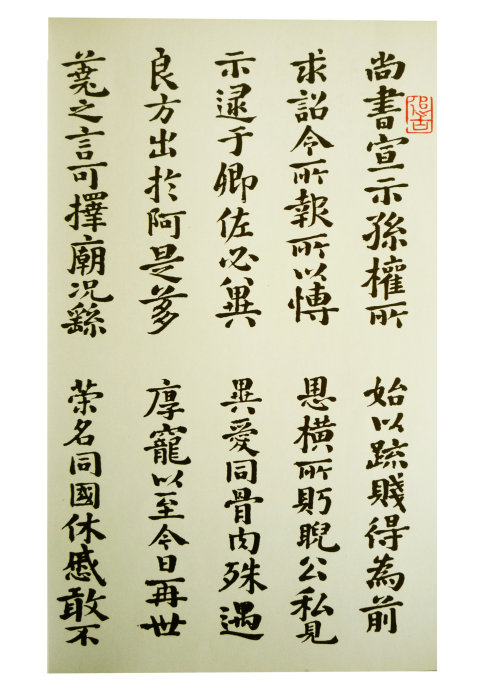 尚書宣示孫權所
求詔令所報所以愽
示逮于卿佐必冀
良方出於阿是芻
蕘之言可擇廟況繇
始以疏賤得為前
恩橫所眄睨公私見
異愛同骨肉殊遇
厚寵以至今日再世
榮名同國休慼敢不